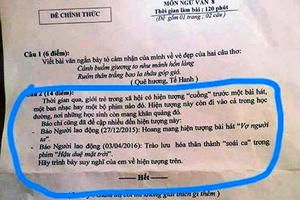 MÔN NGỮ VĂN 8
ĐỀ CHÍNH THỨC
Thời gian làm bài : 120 phút
(Đề gồm 01 trang ; 02 câu)
Câu 1 (6 điểm):
Viết bài văn ngắn bày tỏ cảm nhận của mình về vẻ đẹp của hai câu thơ:
Cánh buồm giương to như mảnh hồn làng
Rướn thân trắng bao la thâu góp gió.
(Quê hương, Tế Hanh)
Câu 2 (14 điểm):
Thời gian qua, giới trẻ trong xã hội có hiện tượng "cuồng" trước một bài hát,
một ban nhạc hay một bộ phim nào đó. Hiện tượng này còn đi vào cả trong học
đường, nơi những học sinh còn mang khăn quàng đỏ.
Báo chí cũng đã đề cập nhiều đến hiện tượng này:
- Báo Người lao động (27/12/2015): Hoang mang hiện tượng bài hát "Vợ người
ta".
- Báo Người lao động (03/04/2016): Trào lưu hóa thân thành "soái ca" trong
phim "Hậu duệ mặt trời".
Hãy trình bày suy nghĩ của em về hiện tượng trên.
Hết
không giải thích gì thêm )